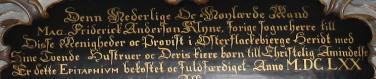 Denn Hederlige Oc Høylærde Mand
Mag: Friderick Anderson Klyne, forige Sogneherre till
Disse Menigheder oc Provist i Østerflackebierge Heridt med
Sine Tvende Hustruer oc Deris fæere børn till Christelig Amindelse
Er dette Epitaphium bekostet oc Fuldfærdiget Anno M.DC LXX